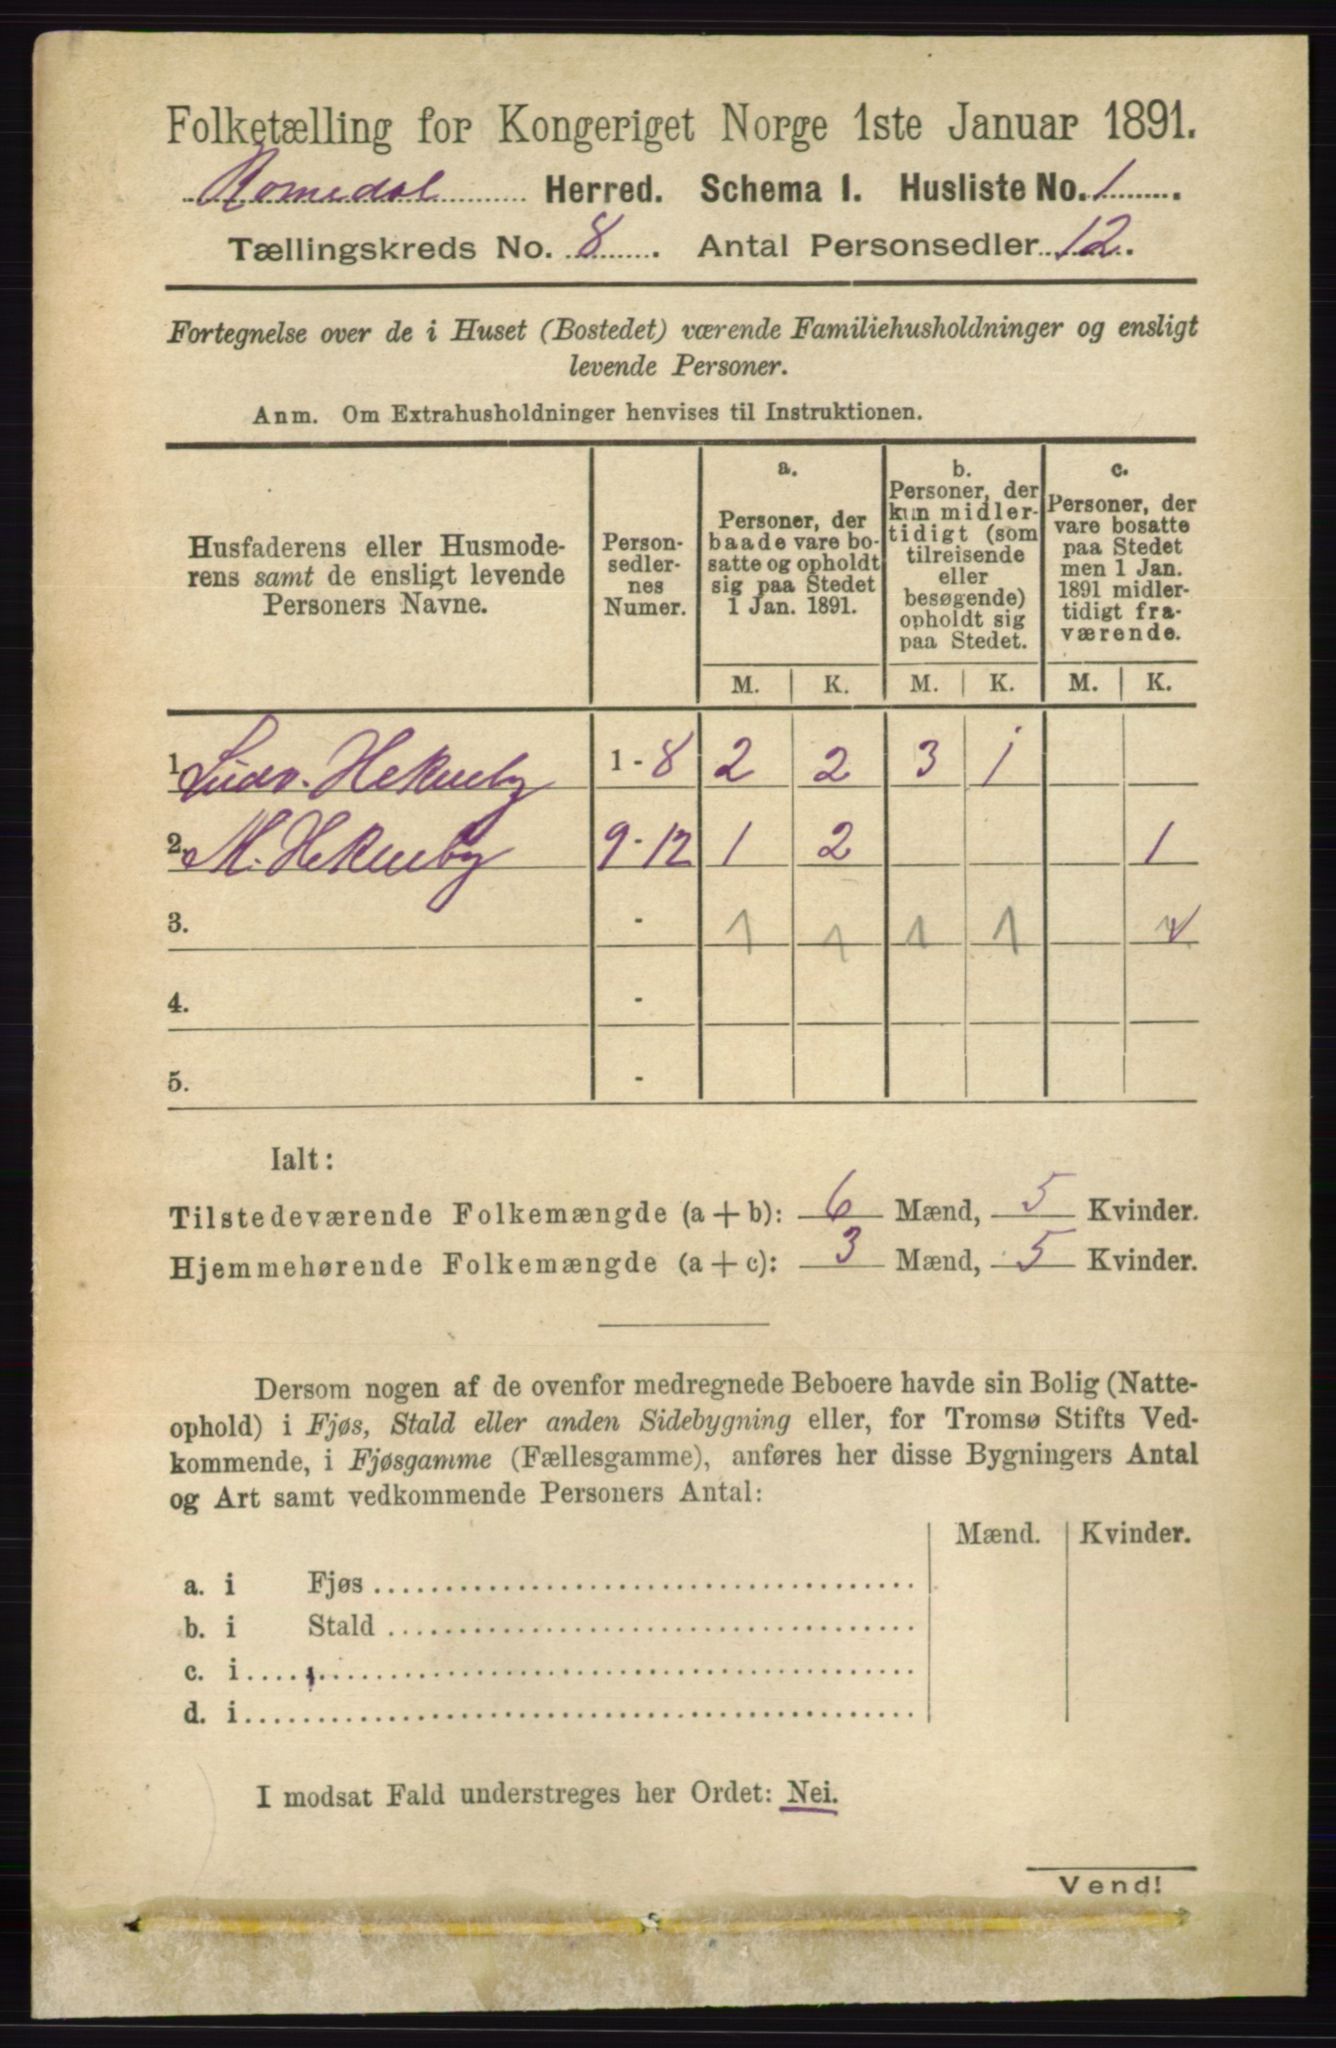 Folketælling for Kongeriget Norge 1ste Januar 1891.
Romedal Herred. Schema I. Husliste No. 1.
Tællingskreds No. 8. Antal Personsedler 12.
Fortegnelse over de i Huset (Bostedet) værende Familiehusholdninger og ensligt
levende Personer.
Anm. Om Extrahusholdninger henvises til Instruktionen.
Husfaderens eller Husmode-
rens samt de ensligt levende
Personers Navne.
Person-
sedler-
nes
Numer.
a.
Personer, der
baade vare bo-
satte og opholdt
sig paa Stedet
1 Jan. 1891.
b.
Personer, der
kun midler-
tidigt (som
tilreisende
eller
besøgende)
opholdt sig
paa Stedet.
c.
Personer, der
vare bosatte
paa Stedet
men 1 Jan.
1891 midler-
tidigt fra-
værende.
M. K. M. K. M. K.
1. Ludv. Hekneby 1 - 8 2 2 3 1
2. M. Hekneby 9 - 12 1 2 1
3. - 1 1 1 1
4. -
5. -
Ialt:
Tilstedeværende Folkemængde (a + b): 6 Mænd, 5 Kvinder.
Hjemmehørende Folkemængde (a + c): 3 Mænd, 5 Kvinder.
Dersom nogen af de ovenfor medregnede Beboere havde sin Bolig (Natte-
ophold) i Fjøs, Stald eller anden Sidebygning eller, for Tromsø Stifts Ved-
kommende, i Fjøsgamme (Fællesgamme), anføres her disse Bygningers Antal
og Art samt vedkommende Personers Antal:
Mænd. Kvinder.
a. i Fjøs
b. i Stald
c. i
d. i
I modsat Fald understreges her Ordet: Nei.
Vend!